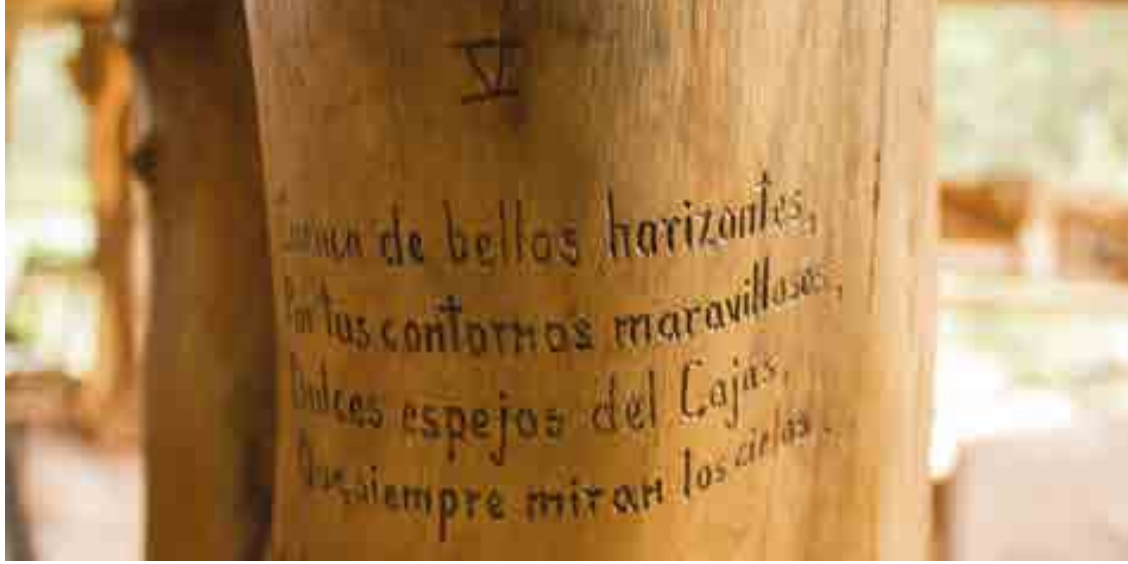 V
de bellos horizontes,
Por tus contornos maravillosos,
Dulces espejos del Cajas,
Que siempre miran los cielos.